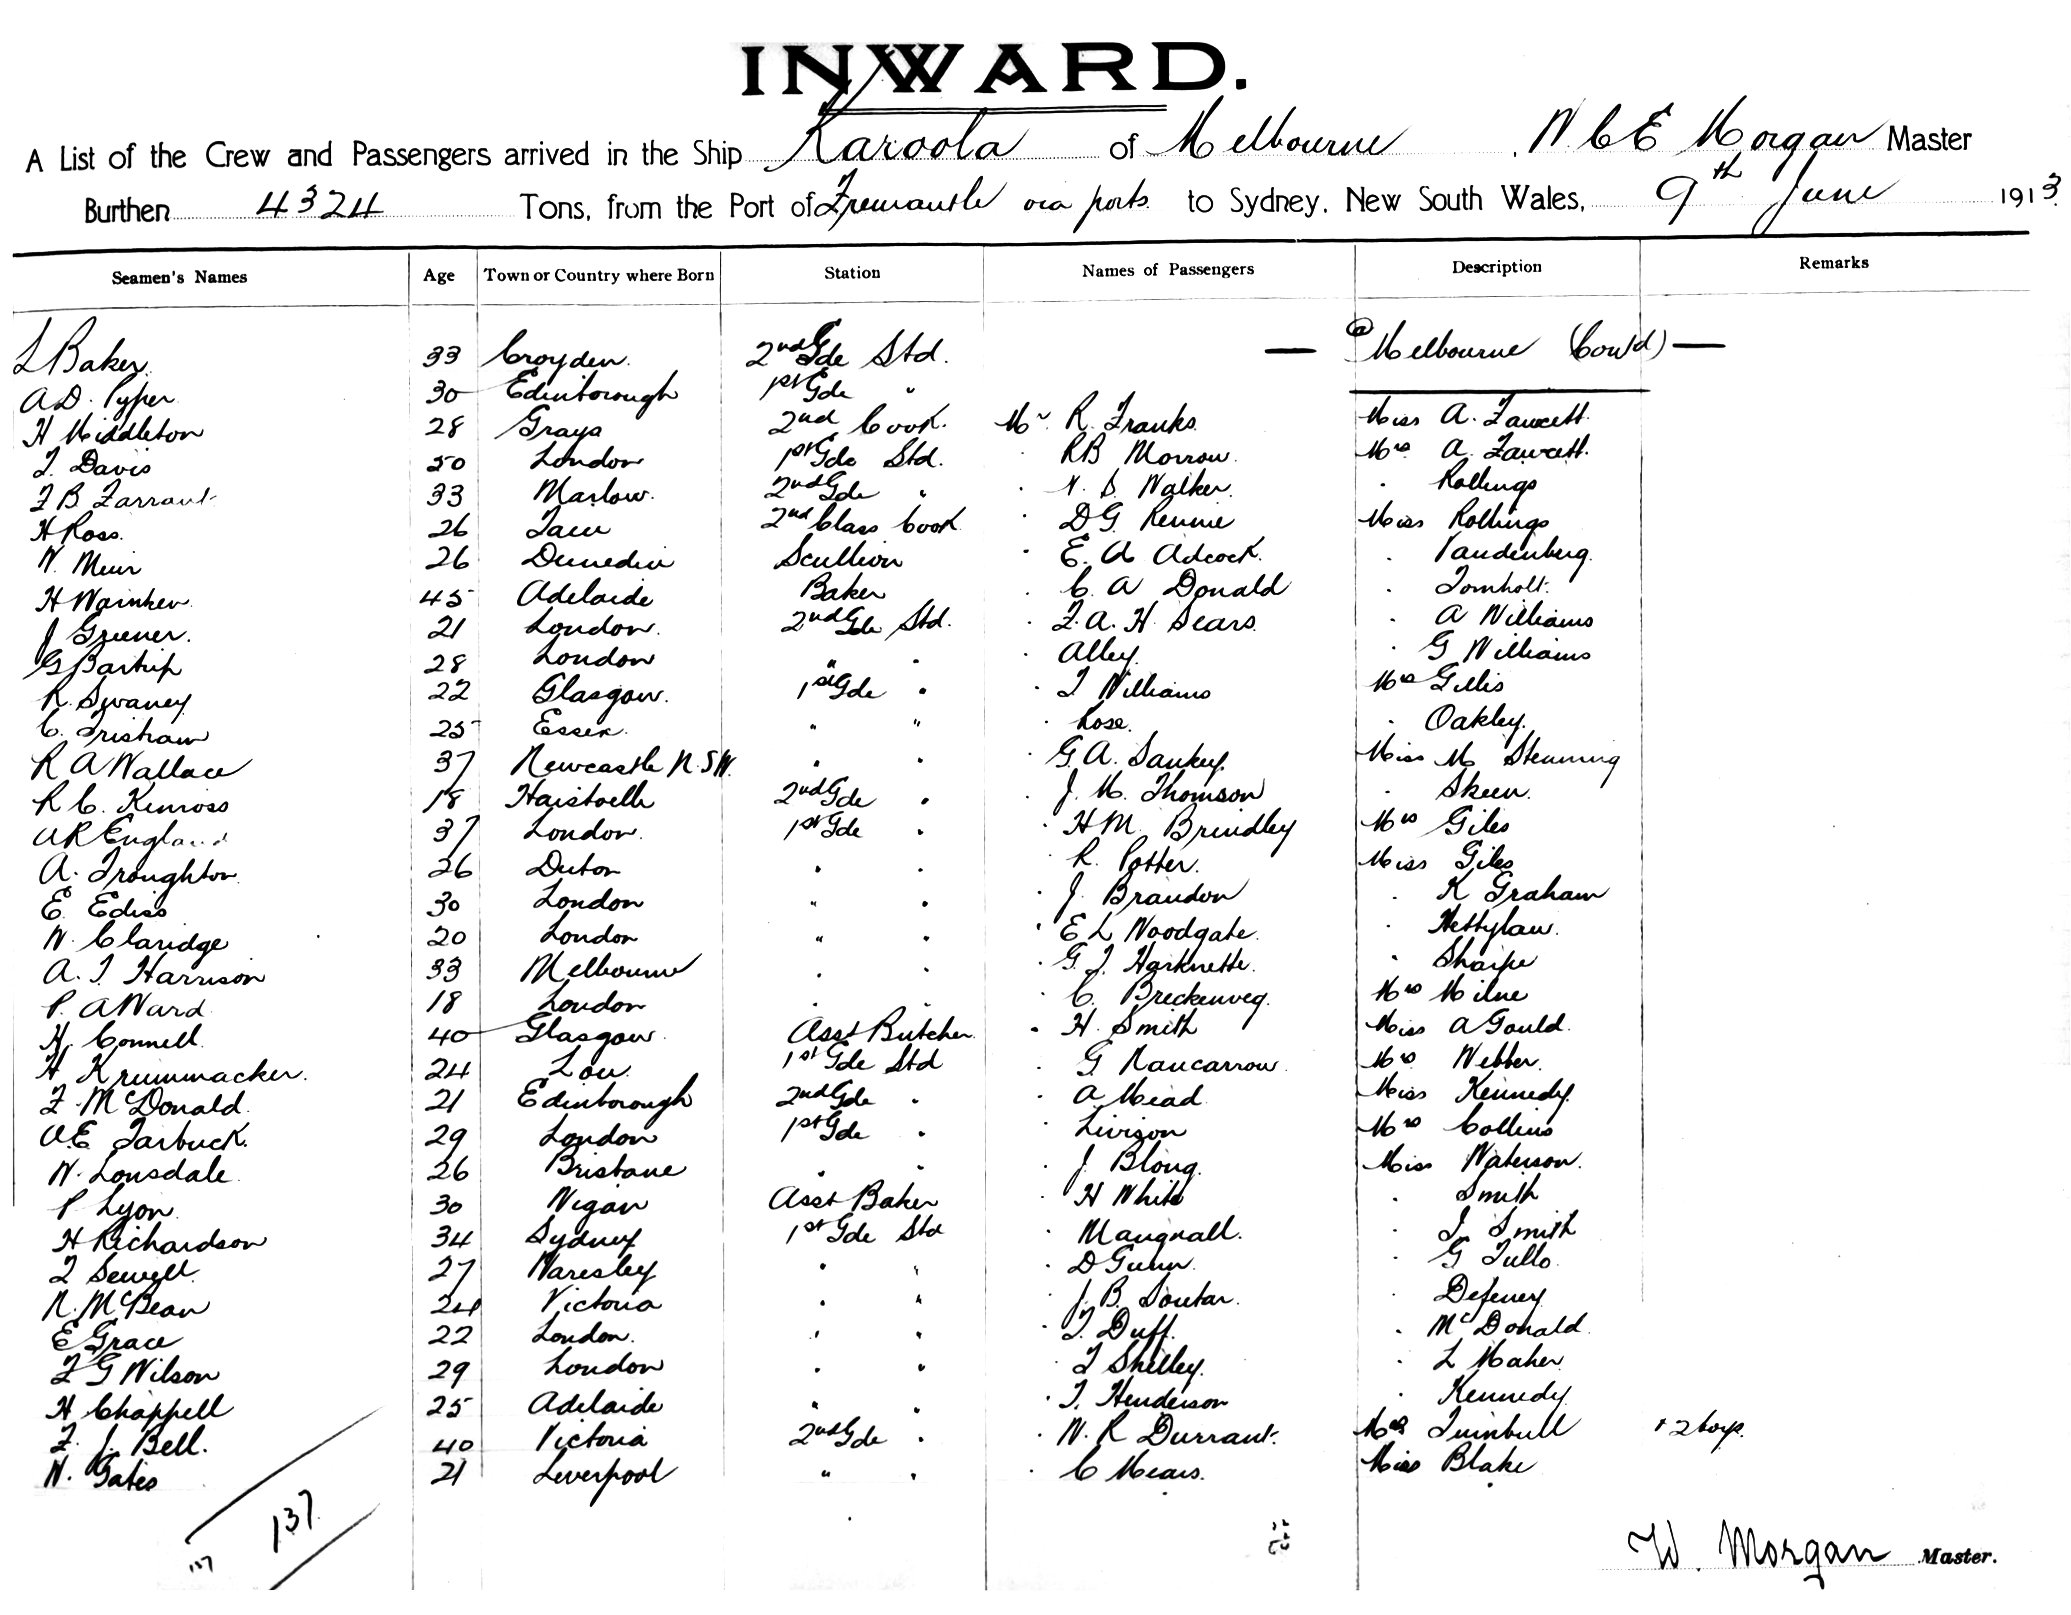 INWARD.
A List of the Crew and Passengers arrived in the Ship Karoola of Melbourne, W C E Morgan Master
Burthen 4324 Tons, from the Port of Fremantle via ports to Sydney, New South Wales, 9th June 1913
Seamen's Names Age Town or Country where Born Station Names of Passengers Description Remarks
L Baker 33 Croyden 2nd Gde Std. — @ Melbourne (Contd) —
A D. Pyper 30 Edinborough 1st Gde "
H Middleton 28 Grays 2nd Cook. Mr. R. Franks Miss A. Fawcett
T. Davis 50 London 1st Gde Std. " RB Morrow. Mrs A. Fawcett.
F B Farrant 33 Marlow. 2nd Gde " " W. S. Walker. " Rollings
H Ross. 26 2nd Class Cook " D G. Rennie Miss Rollings
W. Meir 26 Dunedin Scullion " E. A Adcock. " Vandenberg.
H 45 Adelaide Baker " C. A Donald " Tomholt.
J Greener. 21 London. 2nd Gde Std. " F. A. H. Sears. " A Williams
G Bartrip 28 London " " " Alley. " G Williams
R. Swaney 22 Glasgow. 1st Gde " " T Williams Mrs Gillis
C. Tristram 25 Essex. " " " Rose. " Oakley.
R A Wallace 37 Newcastle N.S.W. " " " G. A. Sankey. Miss M Stenning
R C. Kinross 18 2nd Gde " " J. M. Thomson " Skeen.
A R England 37 London. 1st Gde " " H M. Brindley Mrs Giles
A. Troughton 26 Duton " " " R. Potter. Miss Giles
E. Ediss 30 London " " " J. Brandon " K Graham
W. Claridge 20 London " " " E L Woodgate. " Hettylaw.
A. T. Harrison 33 Melbourne " " " G. J. Harknette. " Sharpe
P. A Ward 18 London " " " C. Breckenveg. Mrs Milne
H. Connell 40 Glasgow. Asst Butcher " H. Smith Miss A Gould.
H Krummacker. 24 Lou. 1st Gde Std " G. Nancarrow. Mrs Webber.
F. McDonald 21 Edinborough 2nd Gde " " A. Mead Miss Kennedy.
A. E Tarbuck. 29 London 1st Gde " " Livison Mrs Collins
W. Lonsdale 26 Brisbane " " " J. Blong. Miss Waterson.
P Lyon 30 Wigan Asst Baker " H White " Smith
H Richardson 34 Sydney 1st Gde Std " Mangnall. " J. Smith
T Sewell 27 Waresley " " " D Gunn. " G Tullo.
N. McBean 24 Victoria " " " J. B. Soutar. " Defeney
E Grace 22 London. " " " T. Duff. " McDonald
F G Wilson 29 London " " " T Shelley. " L Maher.
H Chappell 25 Adelaide " " " T. Henderson " Kennedy
F. J. Bell. 40 Victoria 2nd Gde " " W. R Durrant. Mrs Turnbull + 2 boys.
W. Gates 21 Liverpool " " " C Mears. Miss Blake
137
137
W. Morgan Master.